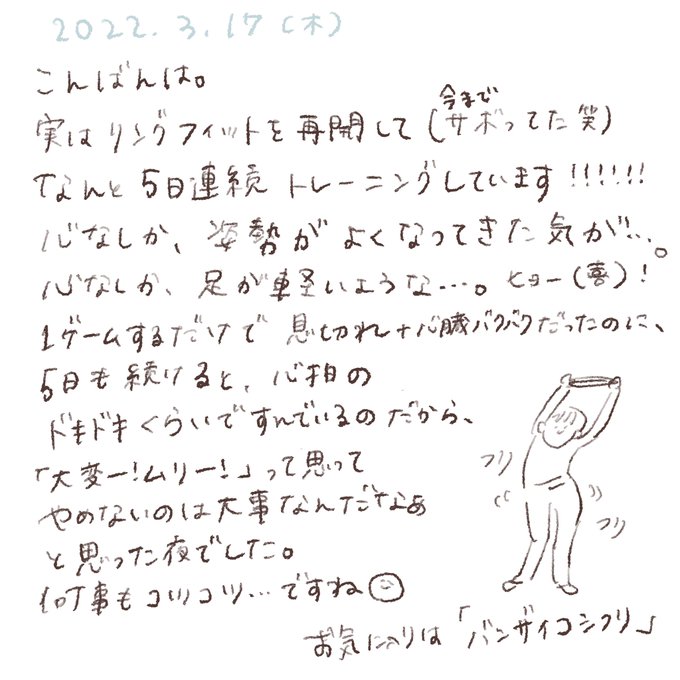 2022.3.17(木)
こんばんは。
実はリングフィットを再開して(今までサボってた笑)
なんと5日連続トレーニングしています!!!!!!
心なしか、姿勢がよくなってきた気が…。
心なしか、足が軽いような…。ヒョー(喜)!
1ゲームするだけで息切れ+心臓バクバクだったのに、
5日も続けると、心拍の
ドキドキくらいですんでいるのだから、
「大変ー!ムリー!」って思って
やめないのは大事なんだなぁ
と思った夜でした。
何事もコツコツ…ですね
フリ
フリ
お気に入りは「バンザイコシフリ」